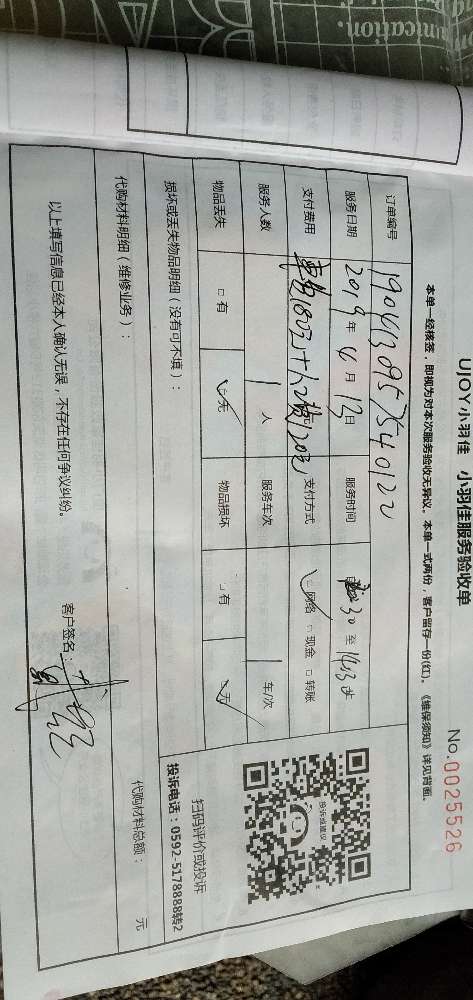 UJOY小羽佳 小羽佳服务验收单
No.0025526
本单一经核签，即视为对本次服务验收无异议。本单一式两份，客户留存一份(红)。《维保须知》详见背面。
订单编号 19041309575540122
服务日期 2019 年 4 月 13 日 服务时间 至
支付费用 支付方式 网络 □ 现金 □ 转账
服务人数 1 人 服务车次 1 车/次
物品丢失 □ 有 □ 无 物品损坏 □ 有 □ 无
扫码评价或投诉
投诉电话：0592-5178888转2
损坏或丢失物品明细（没有可不填）：
代购材料明细（维修业务）： 代购材料总额： 元
以上填写信息已经本人确认无误，不存在任何争议纠纷。
客户签名：